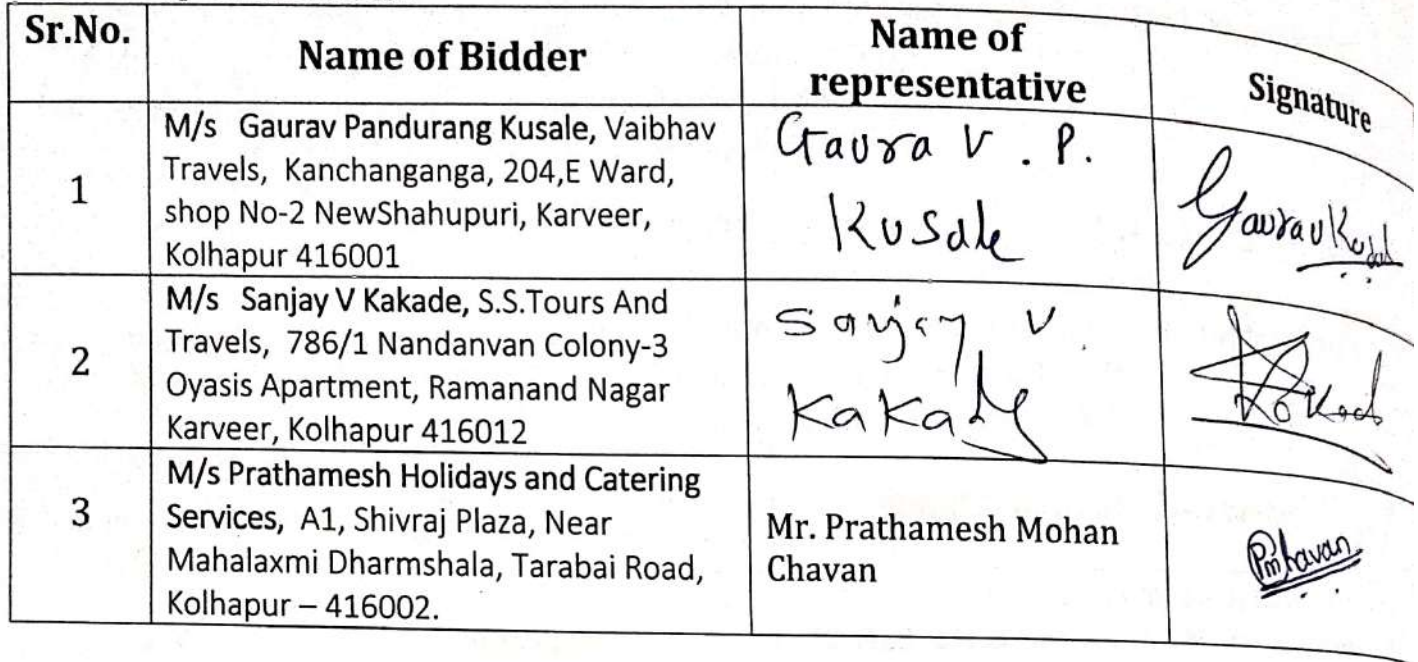 Sr.No.
Name of Bidder
Name of
representative
Signature
1
M/s Gaurav Pandurang Kusale, Vaibhav
Travels, Kanchanganga, 204,E Ward,
shop No-2 NewShahupuri, Karveer,
Kolhapur 416001
Gaurav . P.
Kusale
Gaurav Kusale
2
M/s Sanjay V Kakade, S.S.Tours And
Travels, 786/1 Nandanvan Colony-3
Oyasis Apartment, Ramanand Nagar
Karveer, Kolhapur 416012
Sanjay V.
Kakade
3
M/s Prathamesh Holidays and Catering
Services, A1, Shivraj Plaza, Near
Mahalaxmi Dharmshala, Tarabai Road,
Kolhapur – 416002.
Mr. Prathamesh Mohan
Chavan
PmChavan